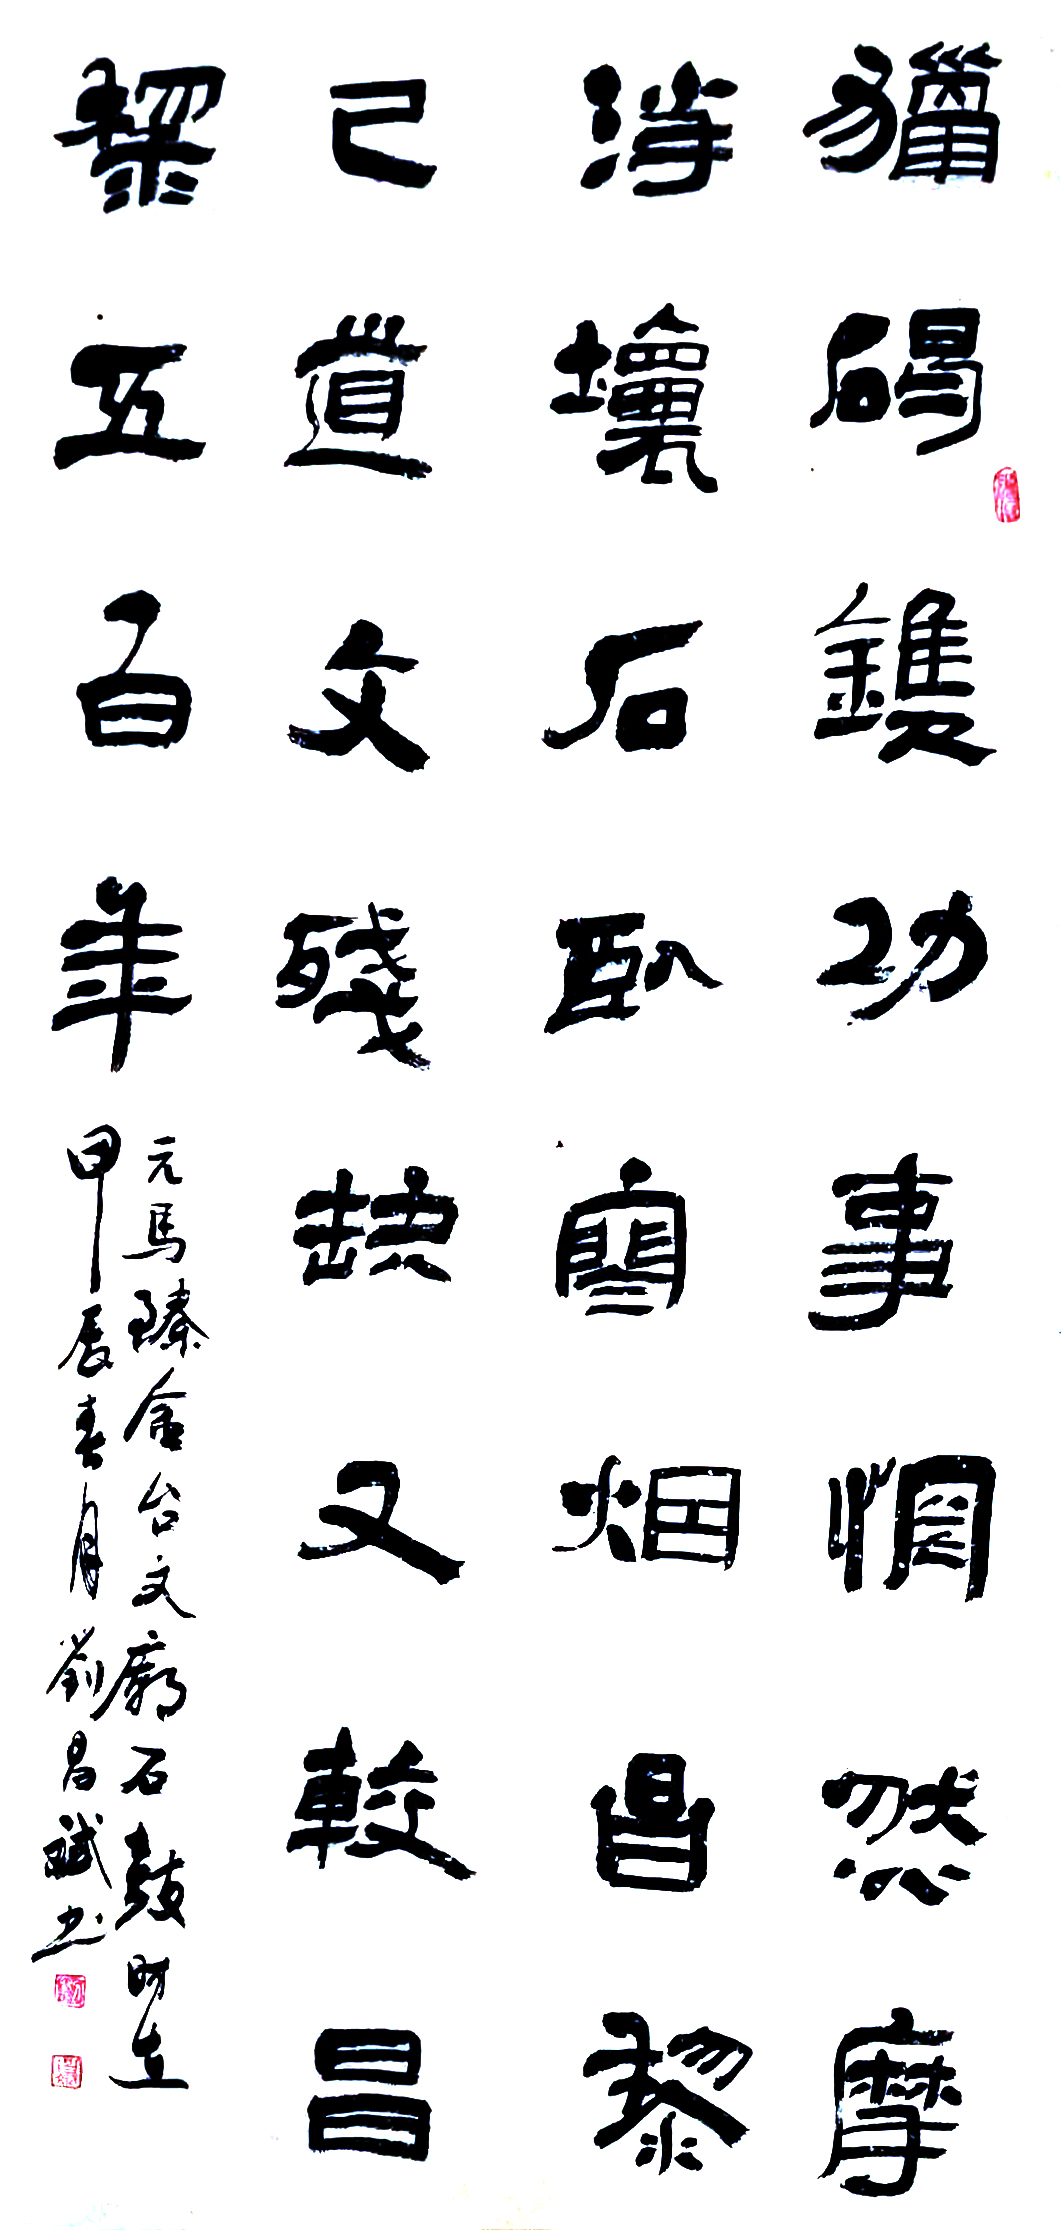 獵碣鐫功事惘然摩
挲壞石卧寒烟昌黎
已道文殘缺又較昌
黎五百年
元马臻金台文廟石鼓时在
甲辰春月劉昌斌书